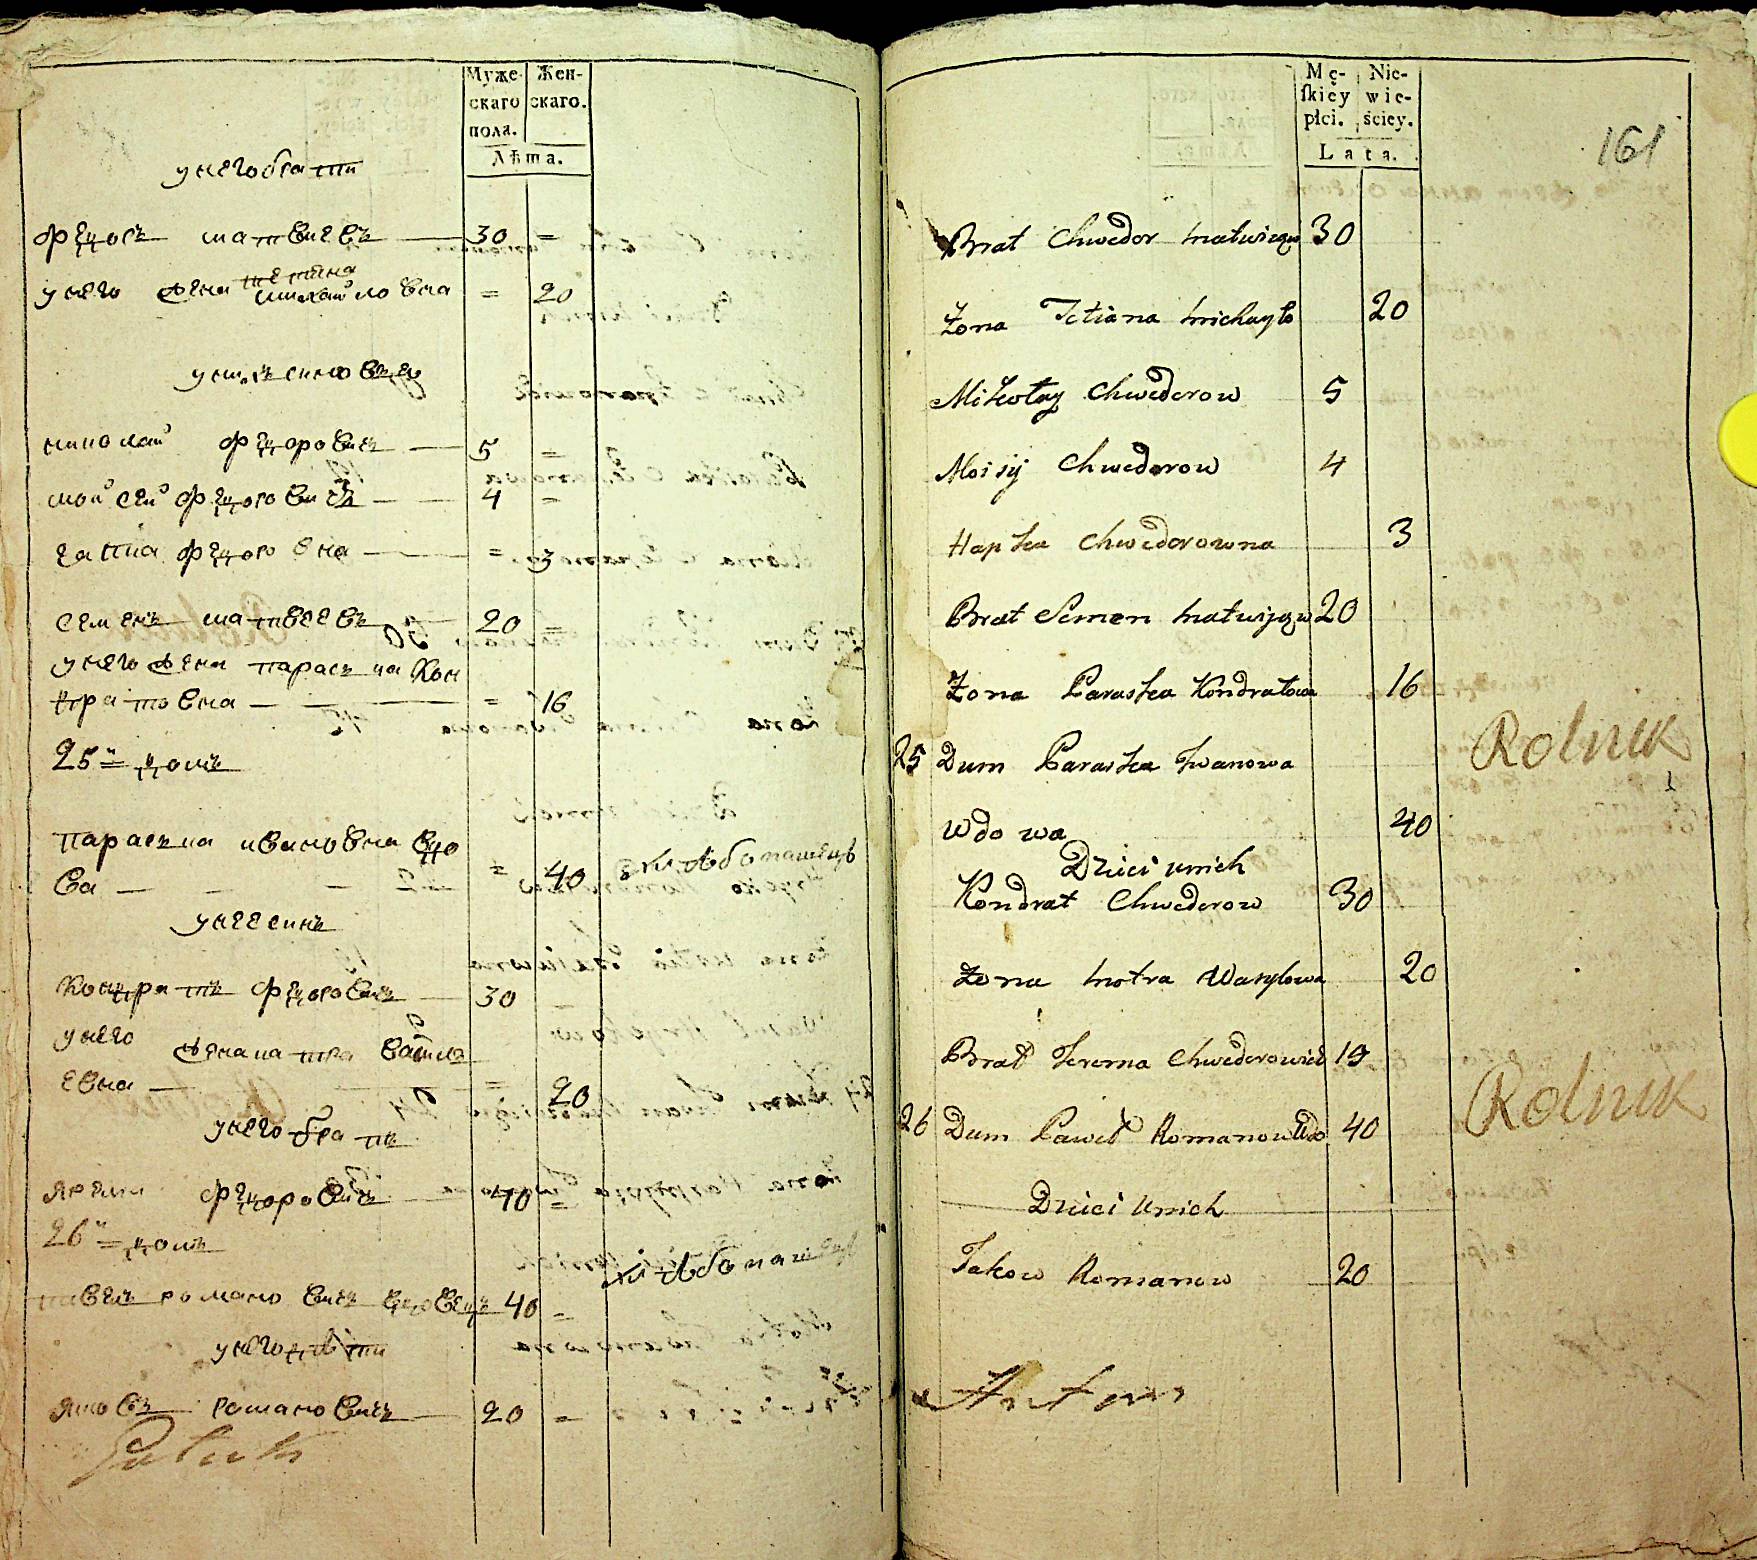 Муже-
скаго
пола.
Жен-
скаго.
Лѣта.
у него брати
Федосъ матвиевъ 30 =
у него жена тетяна
михайловна = 20
николай федоровичъ 5 =
мойсей федоровичъ 4 =
гапка федоровна = 3
семенъ матвеевъ 20 =
у него жена параска кон
дратовна = 16
25й домъ
параска ивановна вдо
ва = 40 хлѣбопашецъ
у нее синъ
кондратъ федоровичъ 30
у него жена матра васил
евна = 20
у него братъ
ярема федоровичъ 40 =
26й домъ
хлѣбопашецъ
павелъ романовичъ вдовецъ 40 =
у него дѣти
яковъ романовичъ 20 =
Mę-
skiéy
płci.
Nie-
wie-
ściey.
Lata.
161
Brat Chwedor Matwiejow 30
Żona Tetiana Michayło 20
Mikołay Chwedorow 5
Moisij Chwedorow 4
Hapka Chwedorowna 3
Brat Semen Matwijow 20
Żona Paraska Kondratowa 16
25 Dum Paraska Iwanowa Rolnik
Wdowa 40
Dzieci unich
Kondrat Chwedorow 30
Żona Motra Wasylowa 20
Brat Jerema Chwedorowicz 19
26 Dum Paweł Romanow Wdo 40 Rolnik
Dzieci unich
Jakow Romanow 20